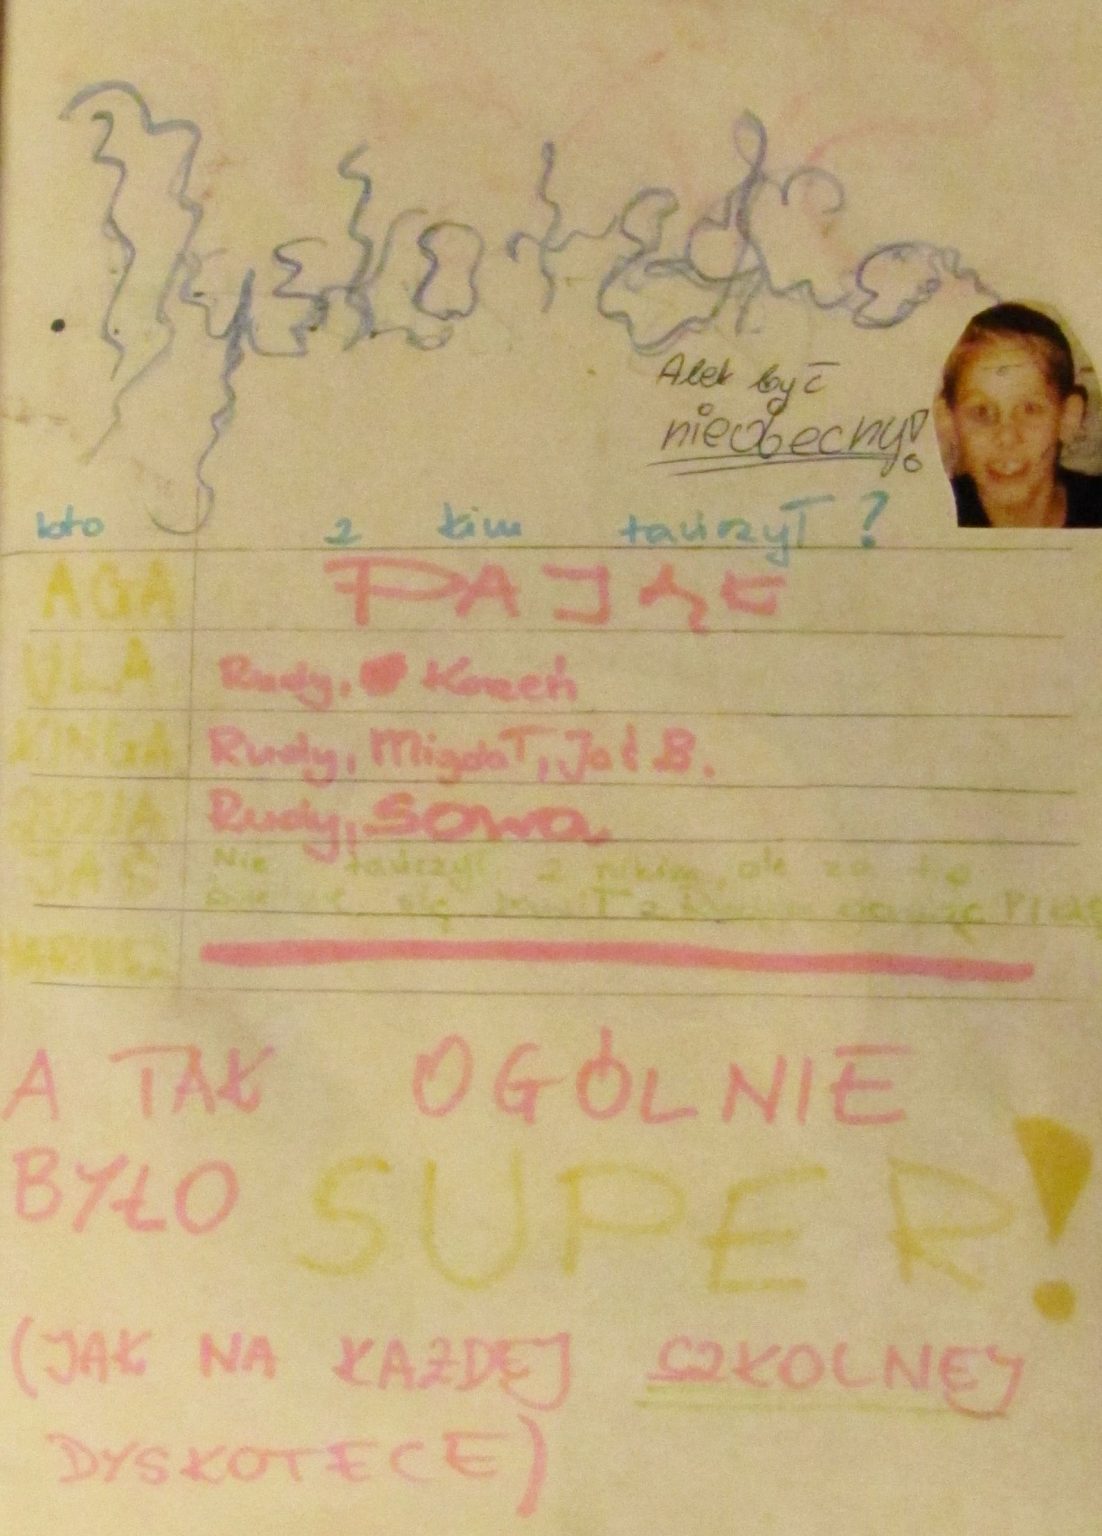 Alek być
nieobecny!
kto z kim tańczył?
AGA PAJĄK
ULA Rudy, Korzeń
KINGA Rudy, Migdał, Jaś B.
ZUZIA Rudy, Sowa
JAŚ Nie tańczył z nikim, ale za to
się bawił z
A TAK OGÓLNIE
BYŁO SUPER!
(JAK NA KAŻDEJ SZKOLNEJ
DYSKOTECE)